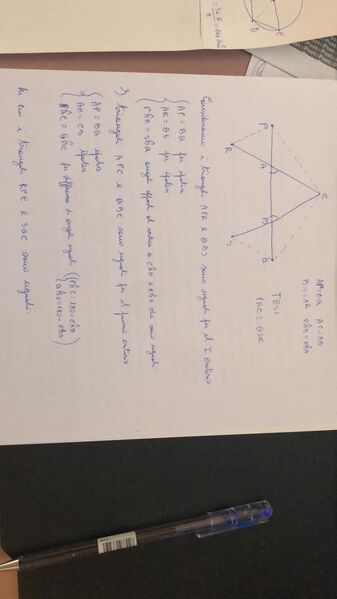 AP=BQ AC=CB
BS=AR CÂB=CB̂A
TESI
PRC = QSC
C
P A B Q
R S
Consideriamo i triangoli APR e QBS sono uguali per il I criterio
AP = BQ per ipotesi
AR = BS per ipotesi
PÂR = SB̂Q angoli opposti al vertice a CÂB e CB̂A che sono uguali
I triangoli APC e QBC sono uguali per il primo criterio
AP = BQ ipotesi
AC = CB ipotesi
PÂC = QB̂C per differenza di angoli uguali (PÂC=180-CÂB
QB̂C=180-CB̂A)
da cui i triangoli RPC e SQC sono uguali.